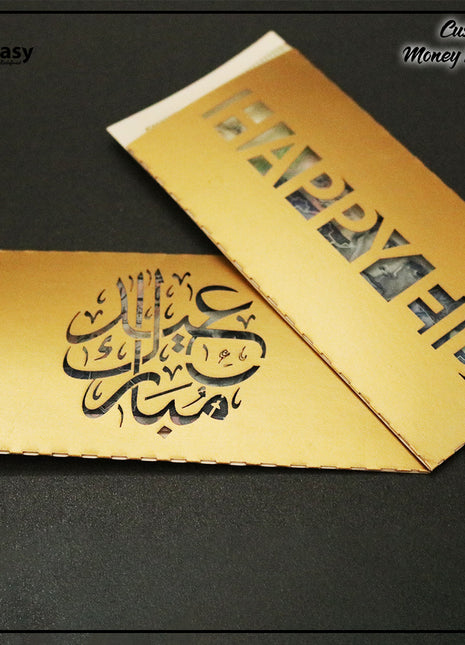 asy
Money
HAPPY
عيد
مُبارك